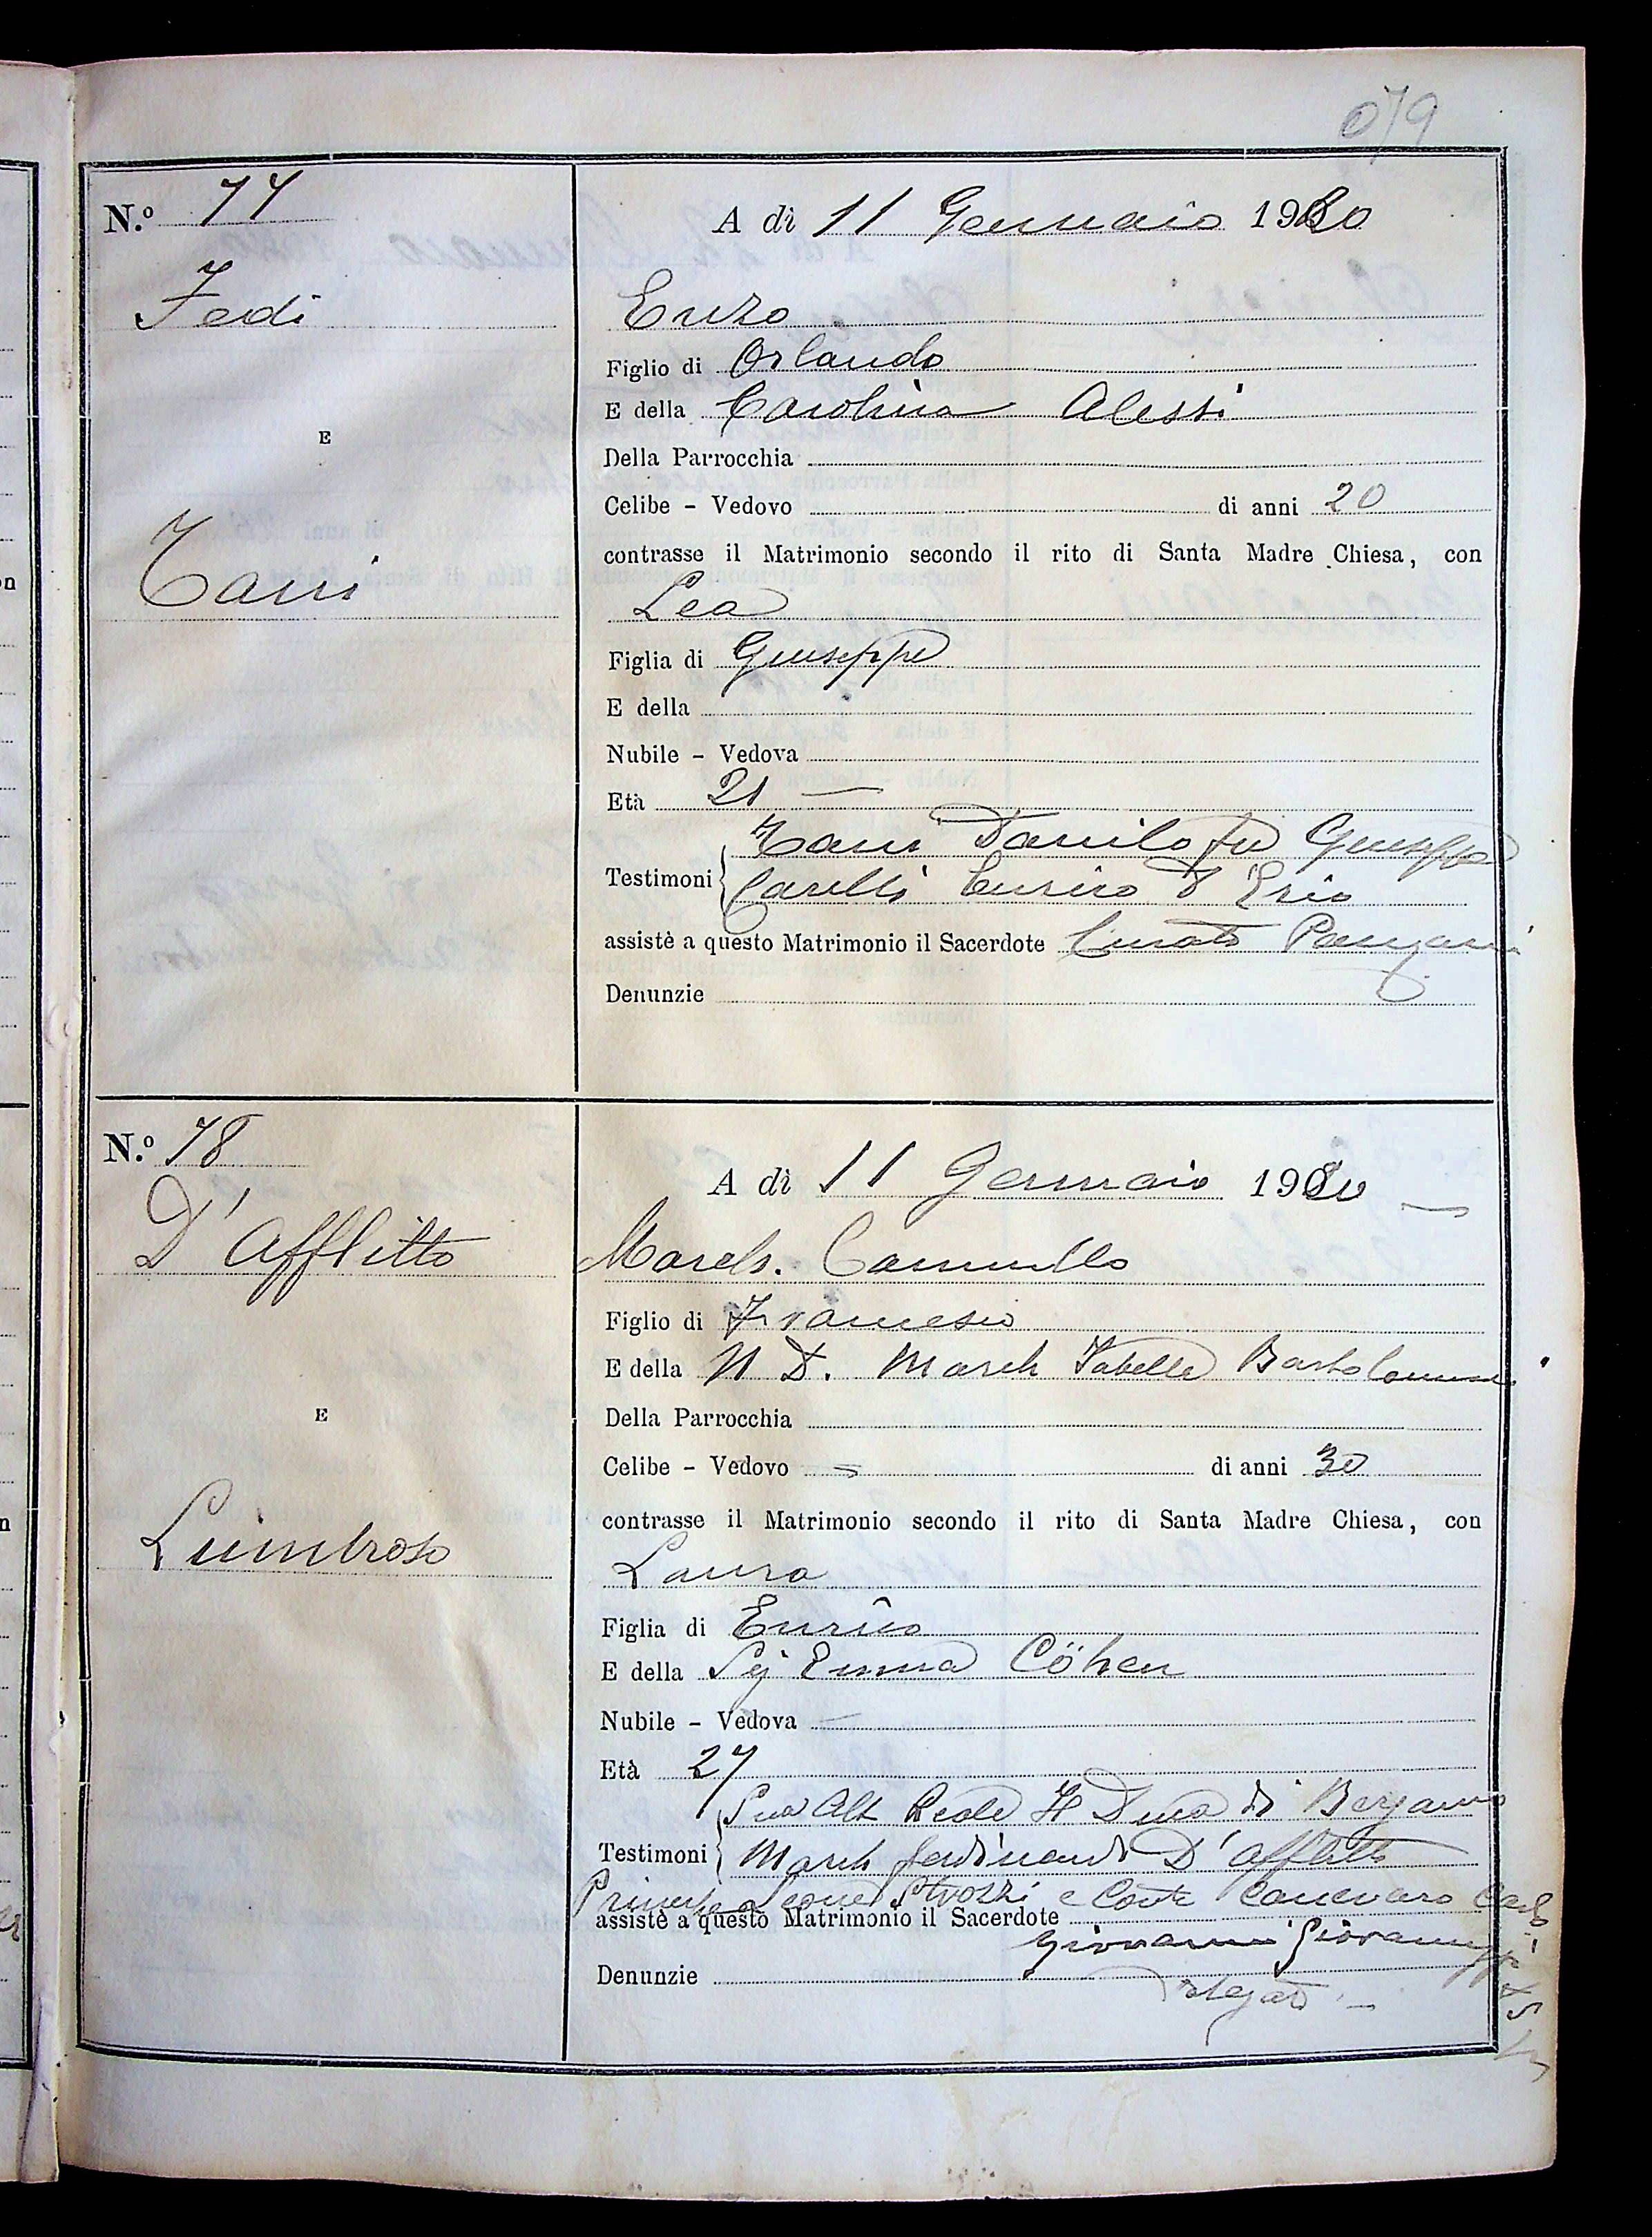 079
N.º 77
A dì 11 Gennaio 1930
Fedi
Enzo
Figlio di Orlando
E della Carolina Alessi
E
Della Parrocchia
Celibe - Vedovo di anni 20
contrasse il Matrimonio secondo il rito di Santa Madre Chiesa, con
Tani
Lea
Figlia di Giuseppe
E della
Nubile - Vedova
Età 21 —
Testimoni { Tani Danilo fu Giuseppe
Carelli Enrico d
assistè a questo Matrimonio il Sacerdote Curato
Denunzie
N.º 78
A dì 11 Gennaio 1930 —
D'Afflitto
March. Cammillo
Figlio di Francesco
E della N D. March Isabella Bartolommei
E
Della Parrocchia
Celibe - Vedovo di anni 30
contrasse il Matrimonio secondo il rito di Santa Madre Chiesa, con
Lumbroso
Laura
Figlia di Enrico
E della Sig Emma Cöhen
Nubile - Vedova —
Età 27
Testimoni { Sua Alt Reale Il Duca di Bergamo
March Ferdinando D'Afflitto
Principe Leone Strozzi e Conte Canevaro Carlo
assistè a questo Matrimonio il Sacerdote
Giovanni
Denunzie